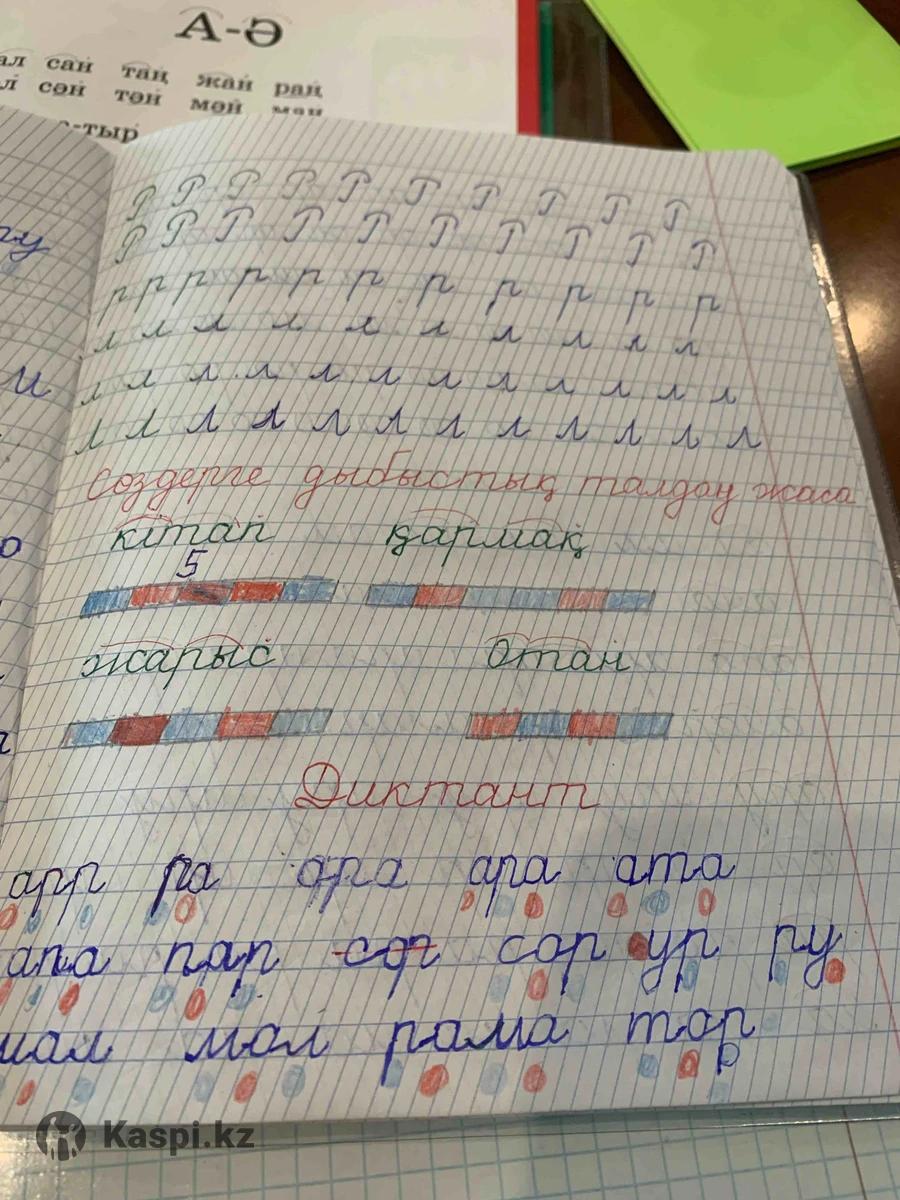 А-Ә
сан таң жан раң
сән тән мән
-тыр
Р Р Р Р Р Р Р Р Р Р
Р Р Р Р Р Р Р Р Р Р
р р р р р р р р р р р
л л л л л л л л л л
л л л л л л л л л л л л
л л л л л л л л л л л л
Сөздерге дыбыстық талдау жаса
кітап қармақ
5
жарыс Отан
Диктант
арр ра ара ара ата
апа пар сор ур ру
мал рама тор
р
Kaspi.kz